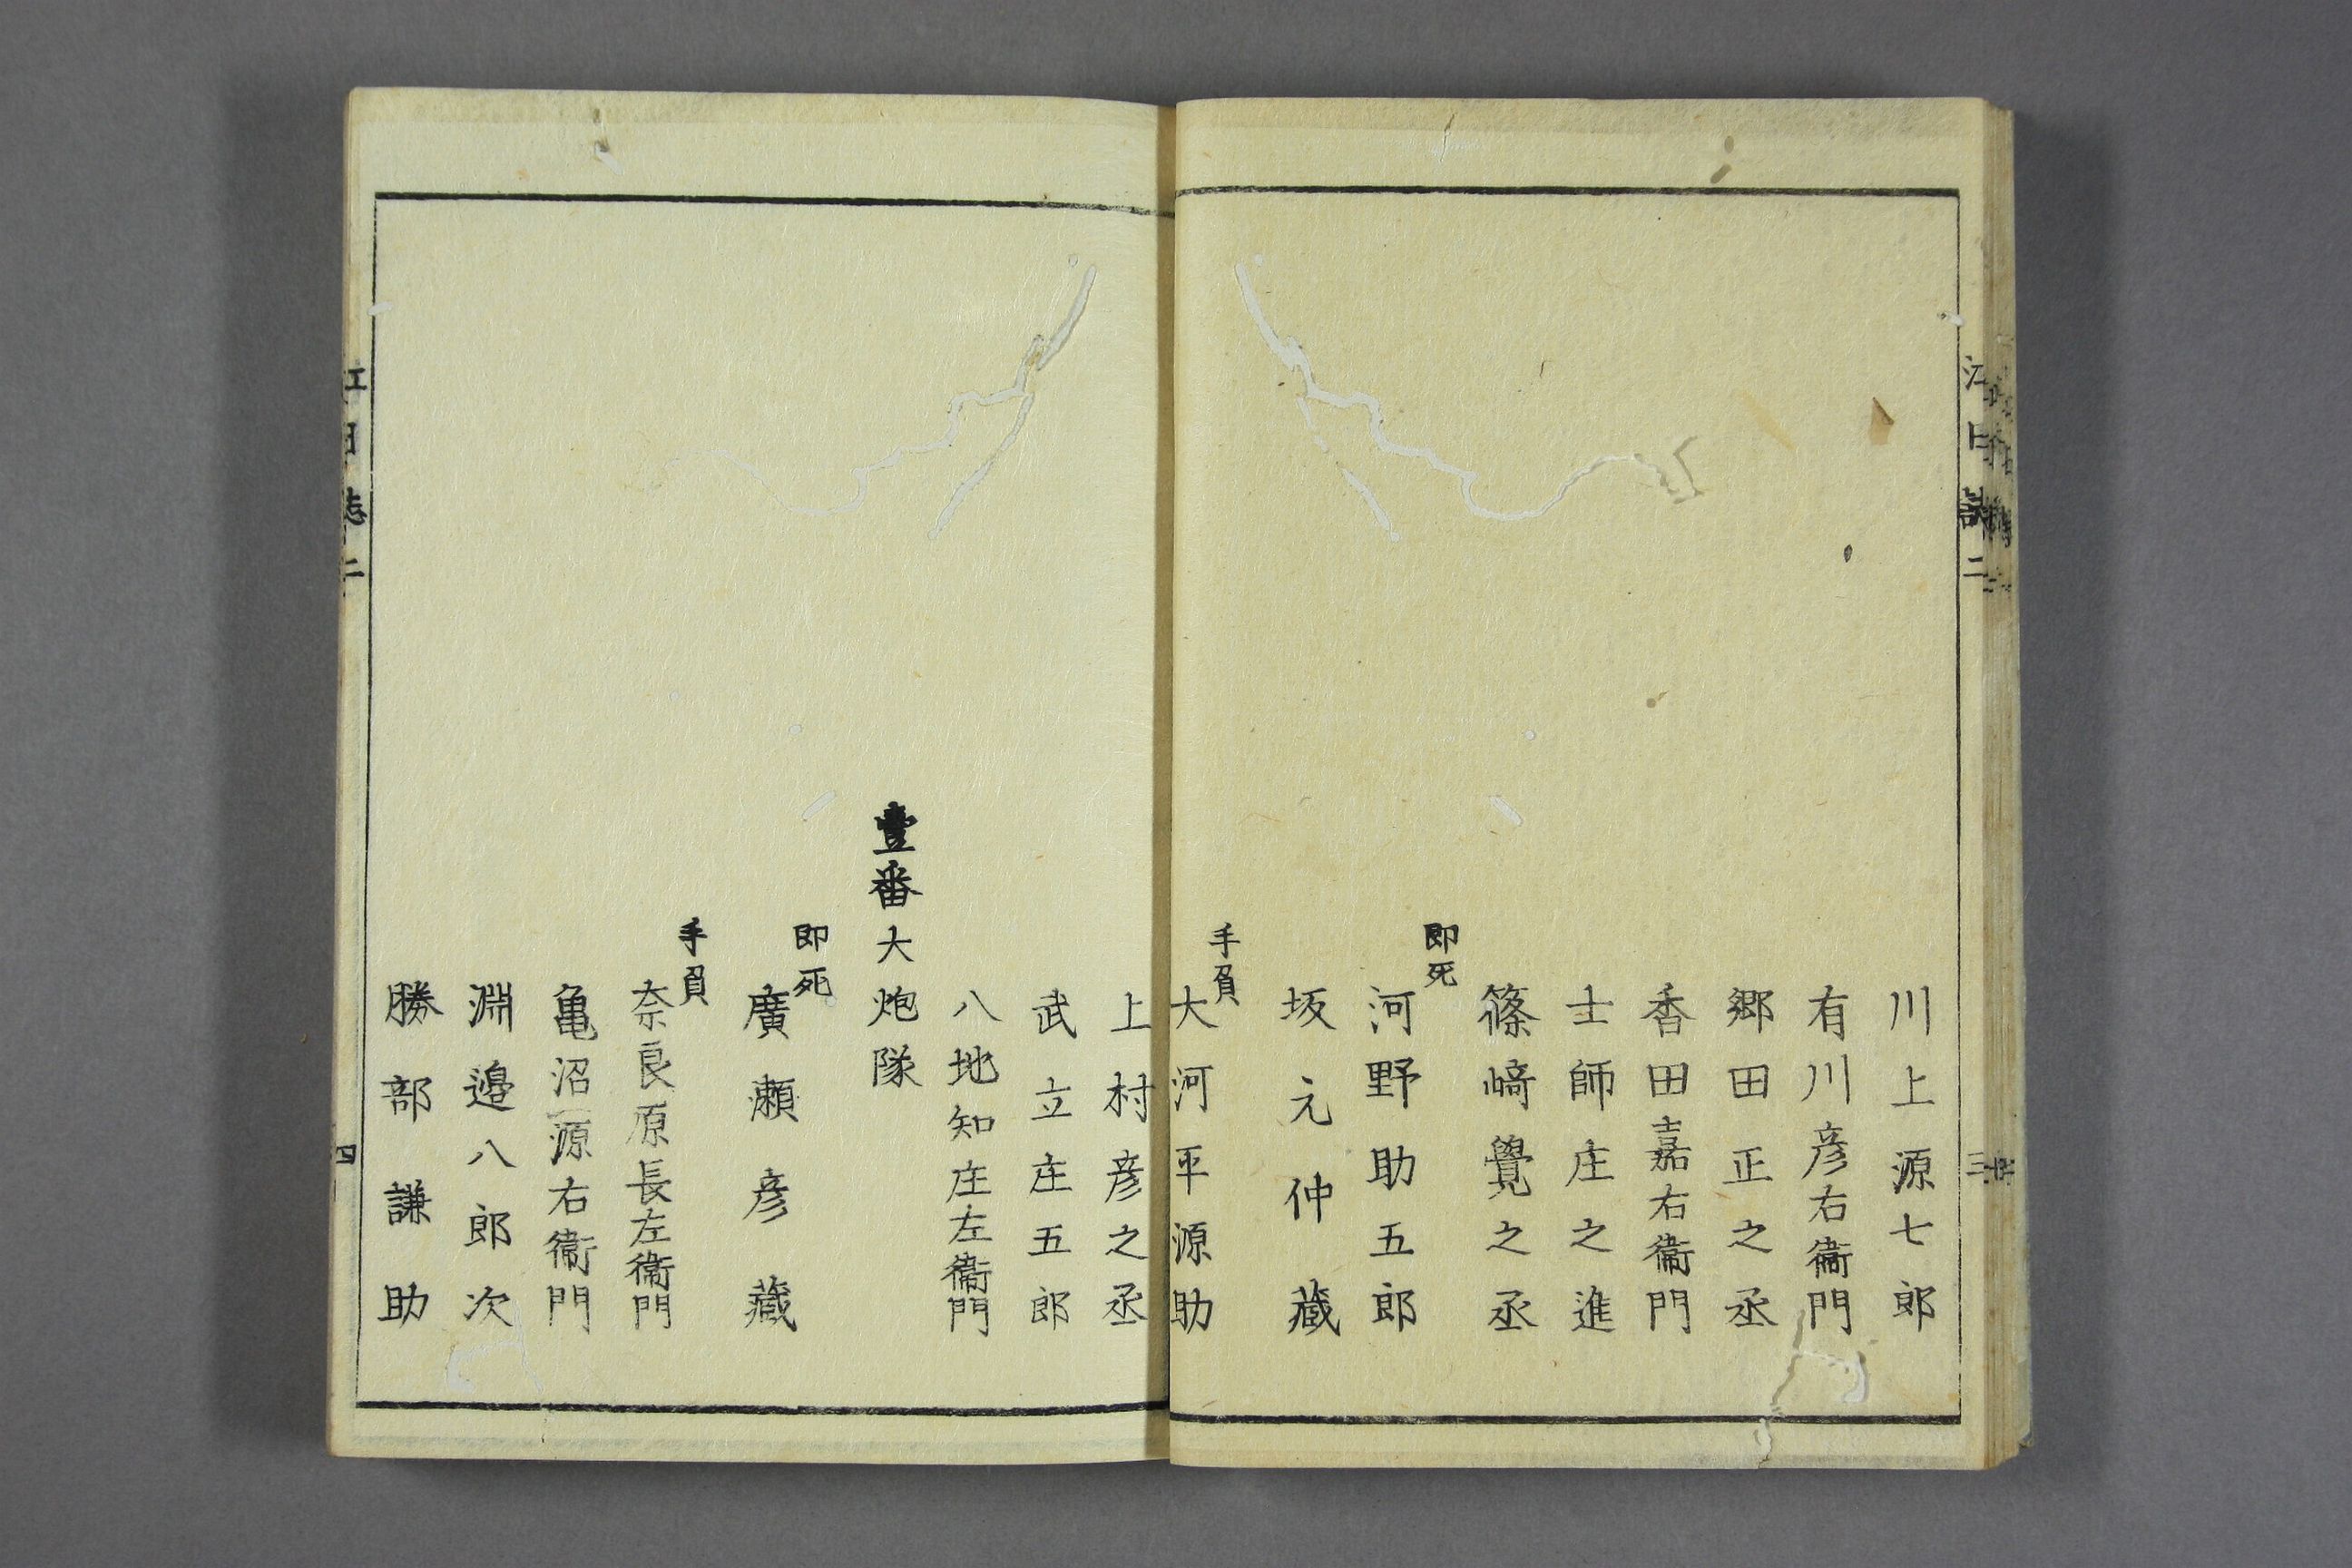 川上源七郎
有川彦右衞門
郷田正之丞
香田嘉右衞門
士師庄之進
篠﨑覺之丞
即死
河野助五郎
坂元仲藏
手負
大河平源助
上村彦之丞
武立庄五郎
八地知庄左衞門
壹番大炮隊
即死
廣瀬彦藏
手負
奈良原長左衞門
亀沼源右衞門
淵邉八郎次
勝部謙助
江日誌二
三
江日誌二
四